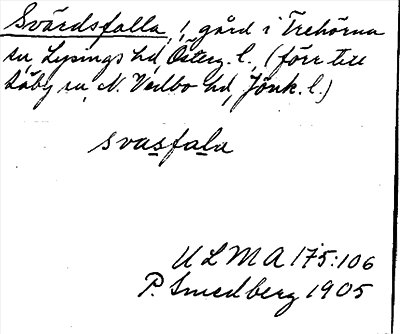 Svärdsfalla, 1 gård i Trehörna
sn, Lysings hd, Österg. l. (förr till
Säby sn, N. Vedbo hd, Jönk. l.)
svasfala
ULMA 175:106
P. Smedberg 1905